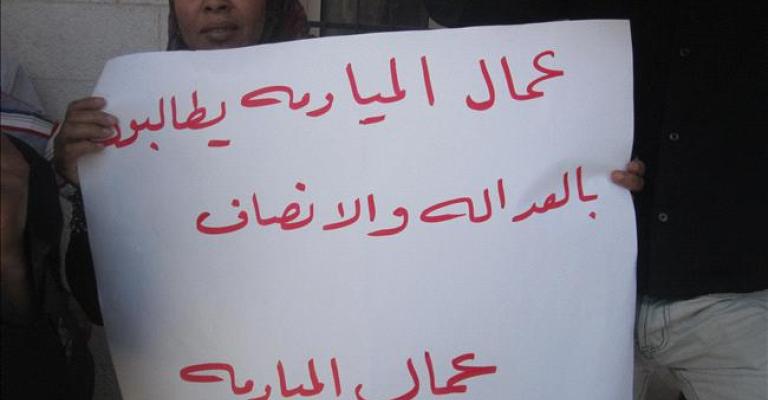 عمال المياومه يطالبون
بالعداله والانصاف
عمال المياومه